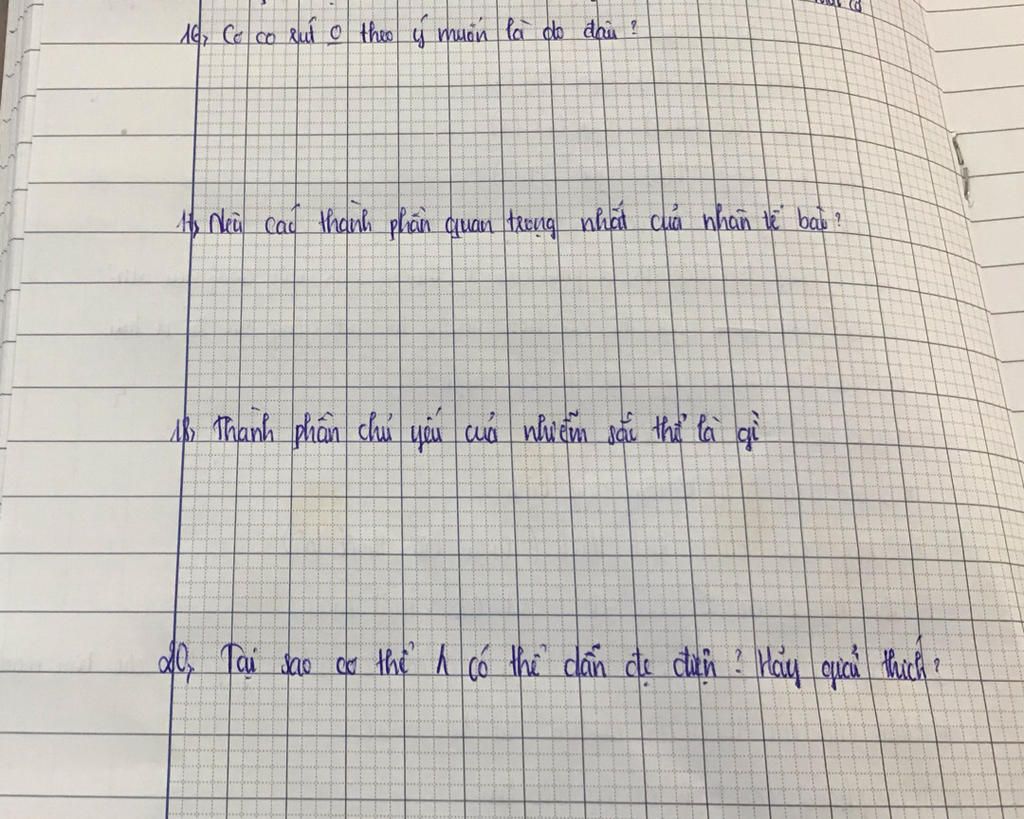 16, Cơ co rút o theo ý muốn là do đâu?
17, Nêu các thành phần quan trọng nhất của nhân tế bào?
18, Thành phần chủ yếu của nhiễm sắc thể là gì
20, Tại sao cơ thể λ có thể dẫn đc điện? Hãy giải thích?